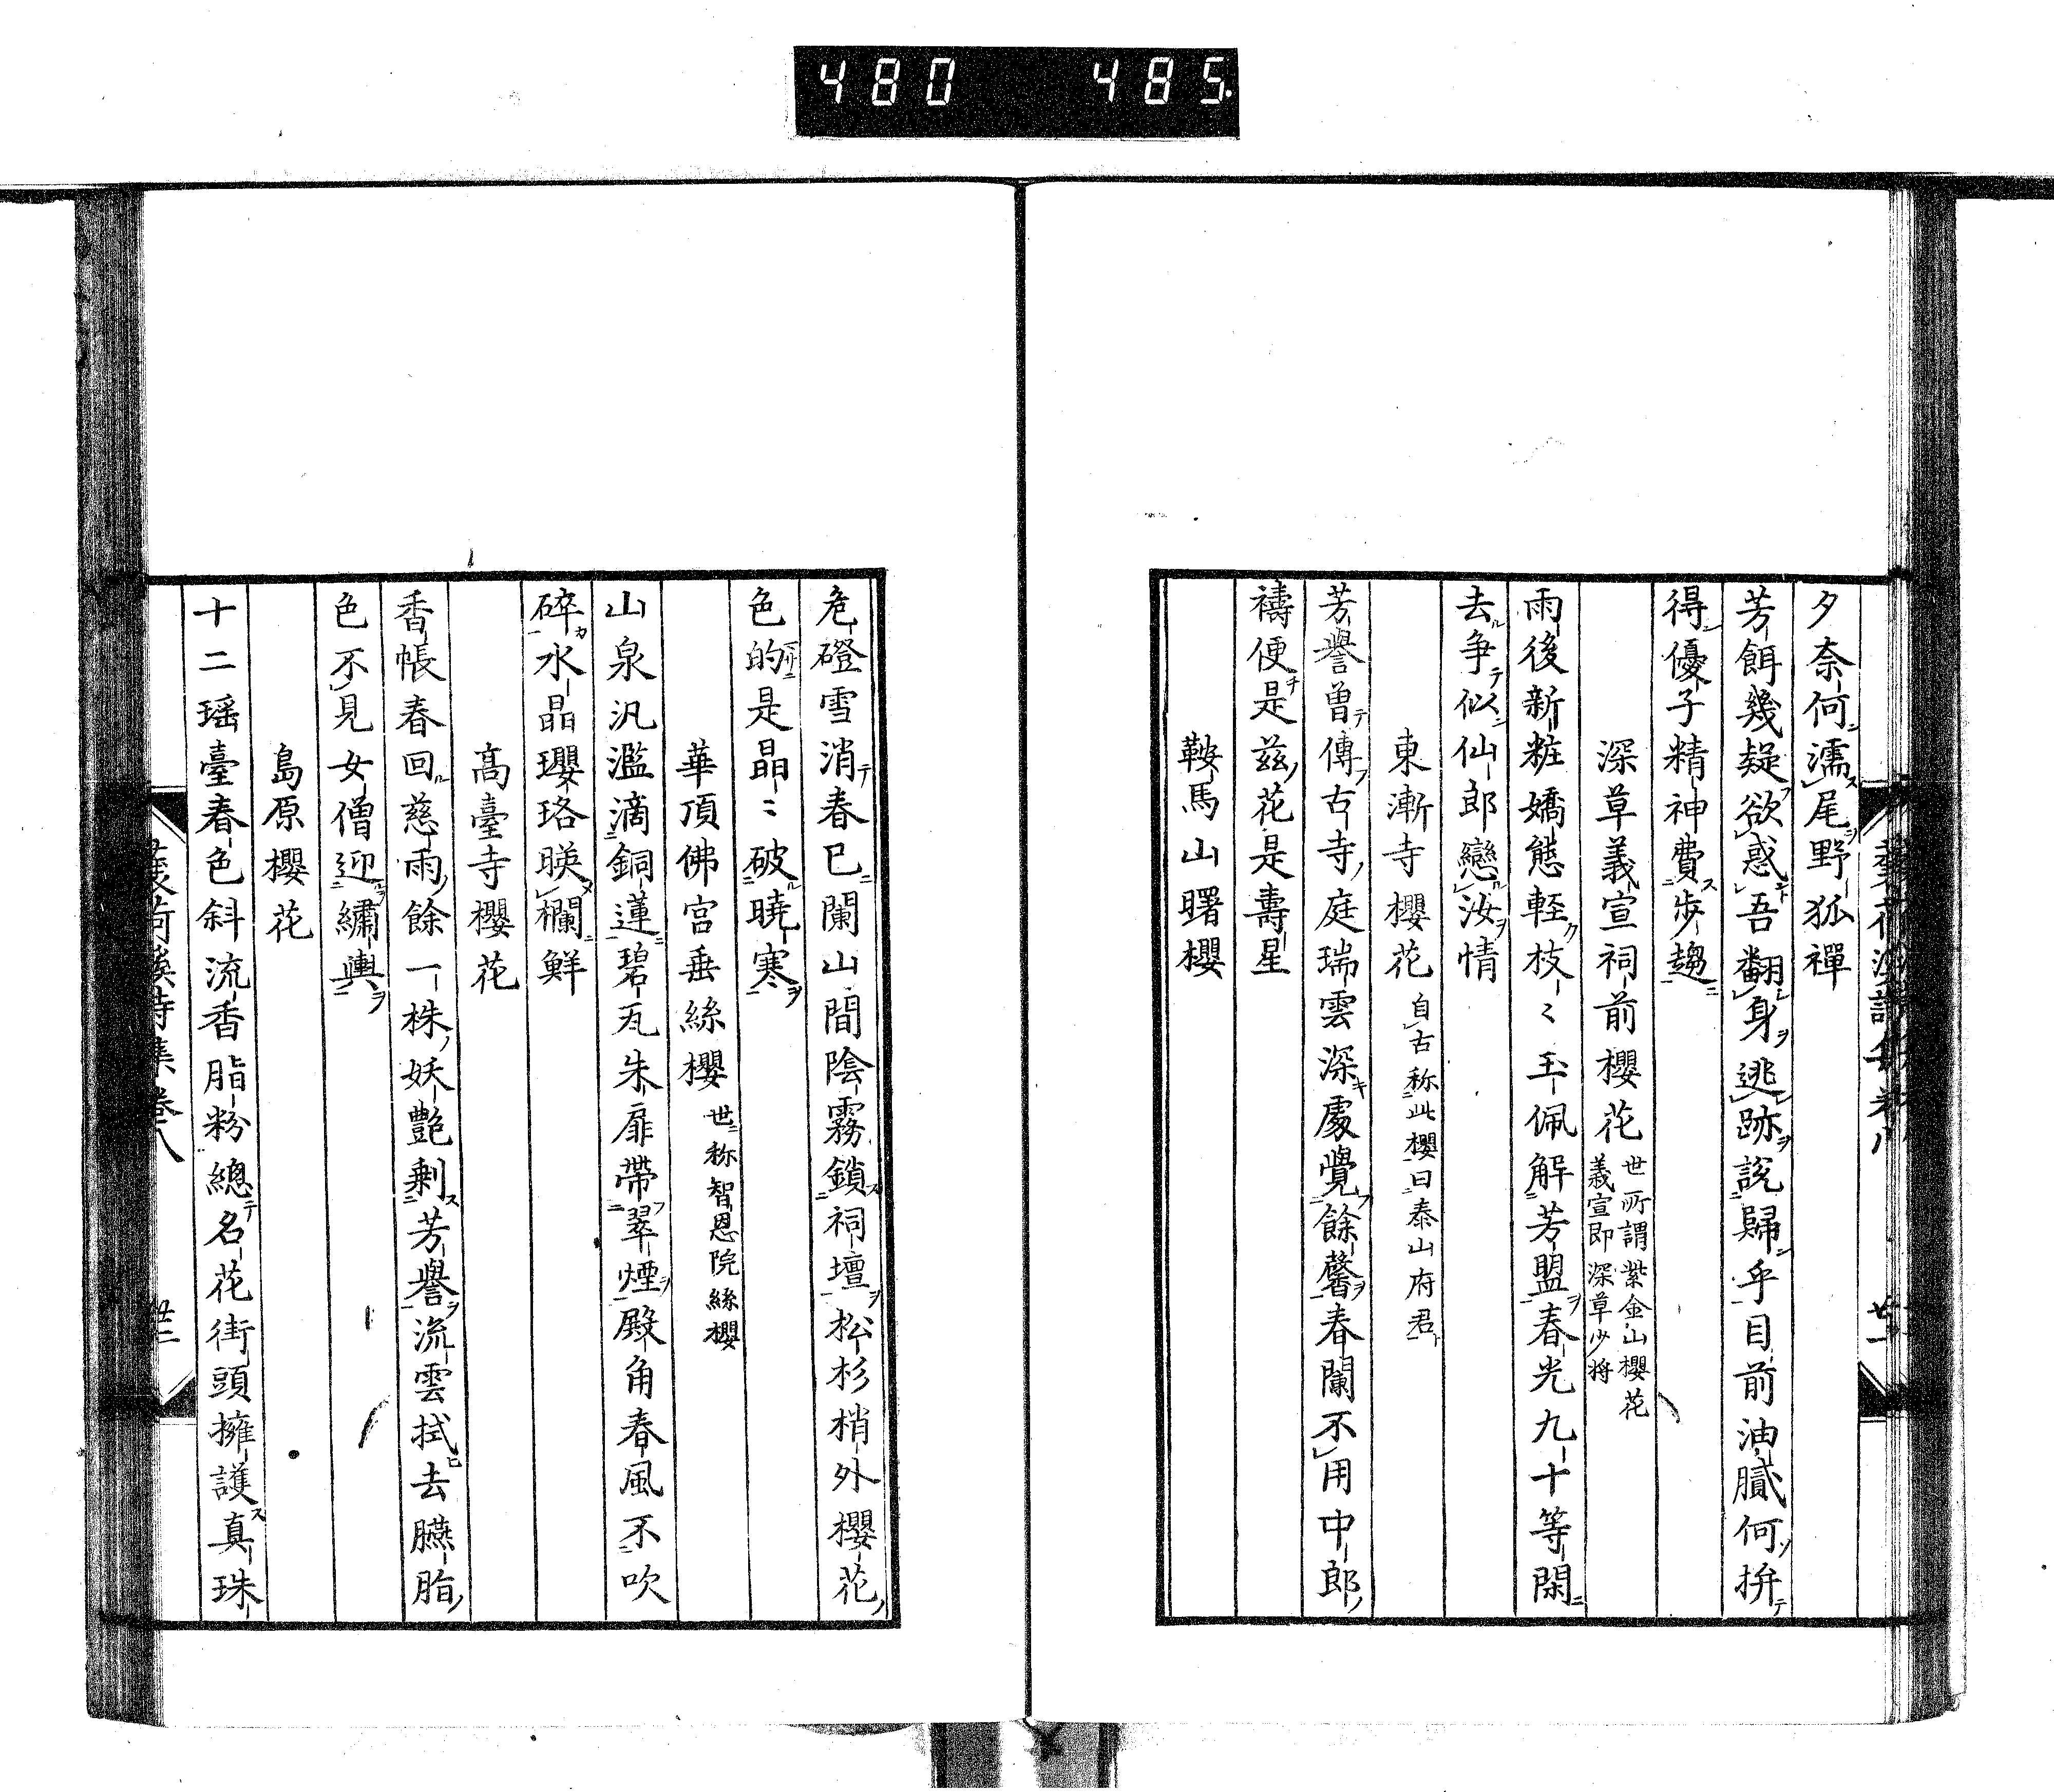 480 485.
夕奈何濡尾野狐禪
芳餌幾疑欲惑吾翻身逃跡説歸乎目前油膩何拚
得優子精神費歩趨
深草義宣祠前櫻花 世所謂紫金山櫻花
義宣即深草少将
雨後新粧嬌態輕枝〻玉佩解芳盟春光九十等閑
去争似仙郎戀汝情
東漸寺櫻花 自古称此櫻曰泰山府君
芳譽曽傳古寺庭瑞雲深處覺餘馨春闌不用中郎
禱便是兹花是壽星
鞍馬山曙櫻
危磴雪消春已闌山間陰霧鎖祠壇松杉梢外櫻花
色的是晶〻破曉寒
華頂佛宮垂絲櫻 世称智恩院絲櫻
山泉汎濫滴銅蓮碧瓦朱扉帶翠煙殿角春風不吹
碎水晶瓔珞暎欄鮮
髙臺寺櫻花
香帳春回慈雨餘一株妖艶剰芳譽流雲拭去臙脂
色不見女僧迎繡輿
島原櫻花
十二瑶臺春色斜流香脂粉總名花街頭擁護真珠